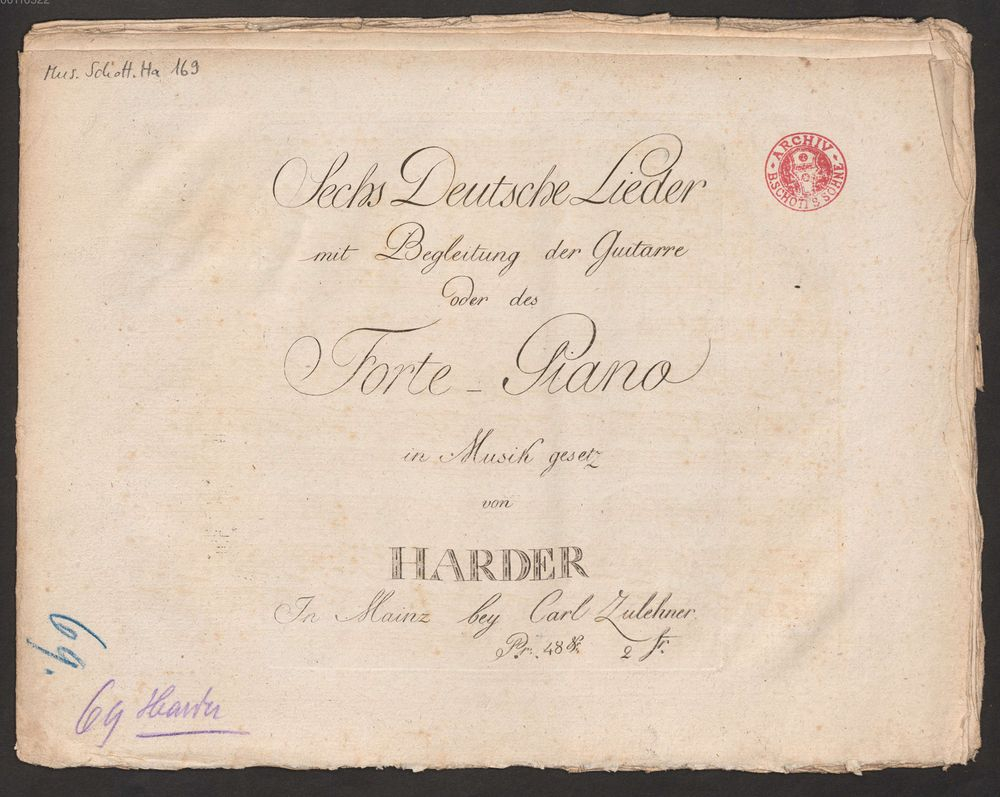 Mus. Schott. Ha 169
ARCHIV
B. SCHOTT'S SÖHNE
Sechs Deutsche Lieder
mit Begleitung der Guitarre
oder des
Forte - Piano
in Musik gesetz
von
HARDER
In Mainz bey Carl Zulehner
Pr: 48 Xr. 2 fr.
69.
69 Harder